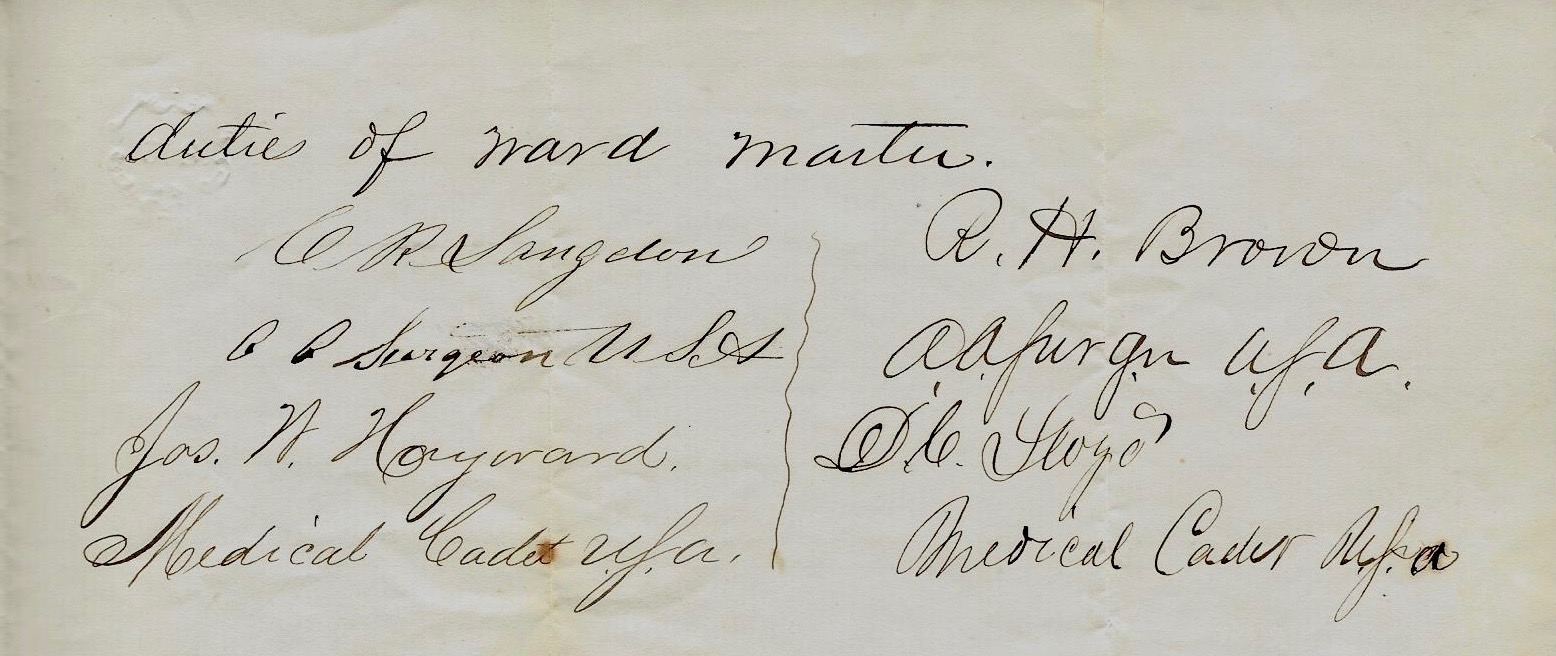 duties of ward master.
C R Langdon
A A Surgeon U S A
Jos. W. Hayward.
Medical Cadet U.S.A.
R. H. Brown
A.A. Surgn U.S.A.
D.C. Lloyd
Medical Cadet U.S.A